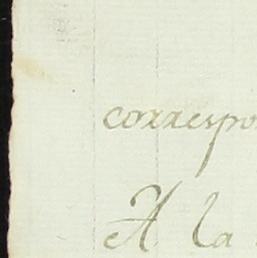 correspo
A la